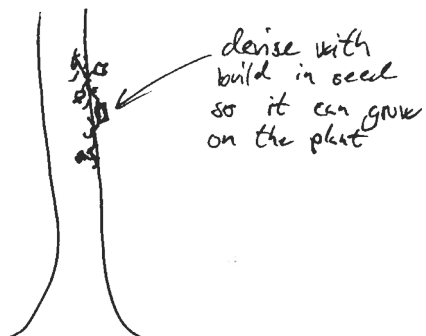 devise with
build in seed
so it can grow
on the plant